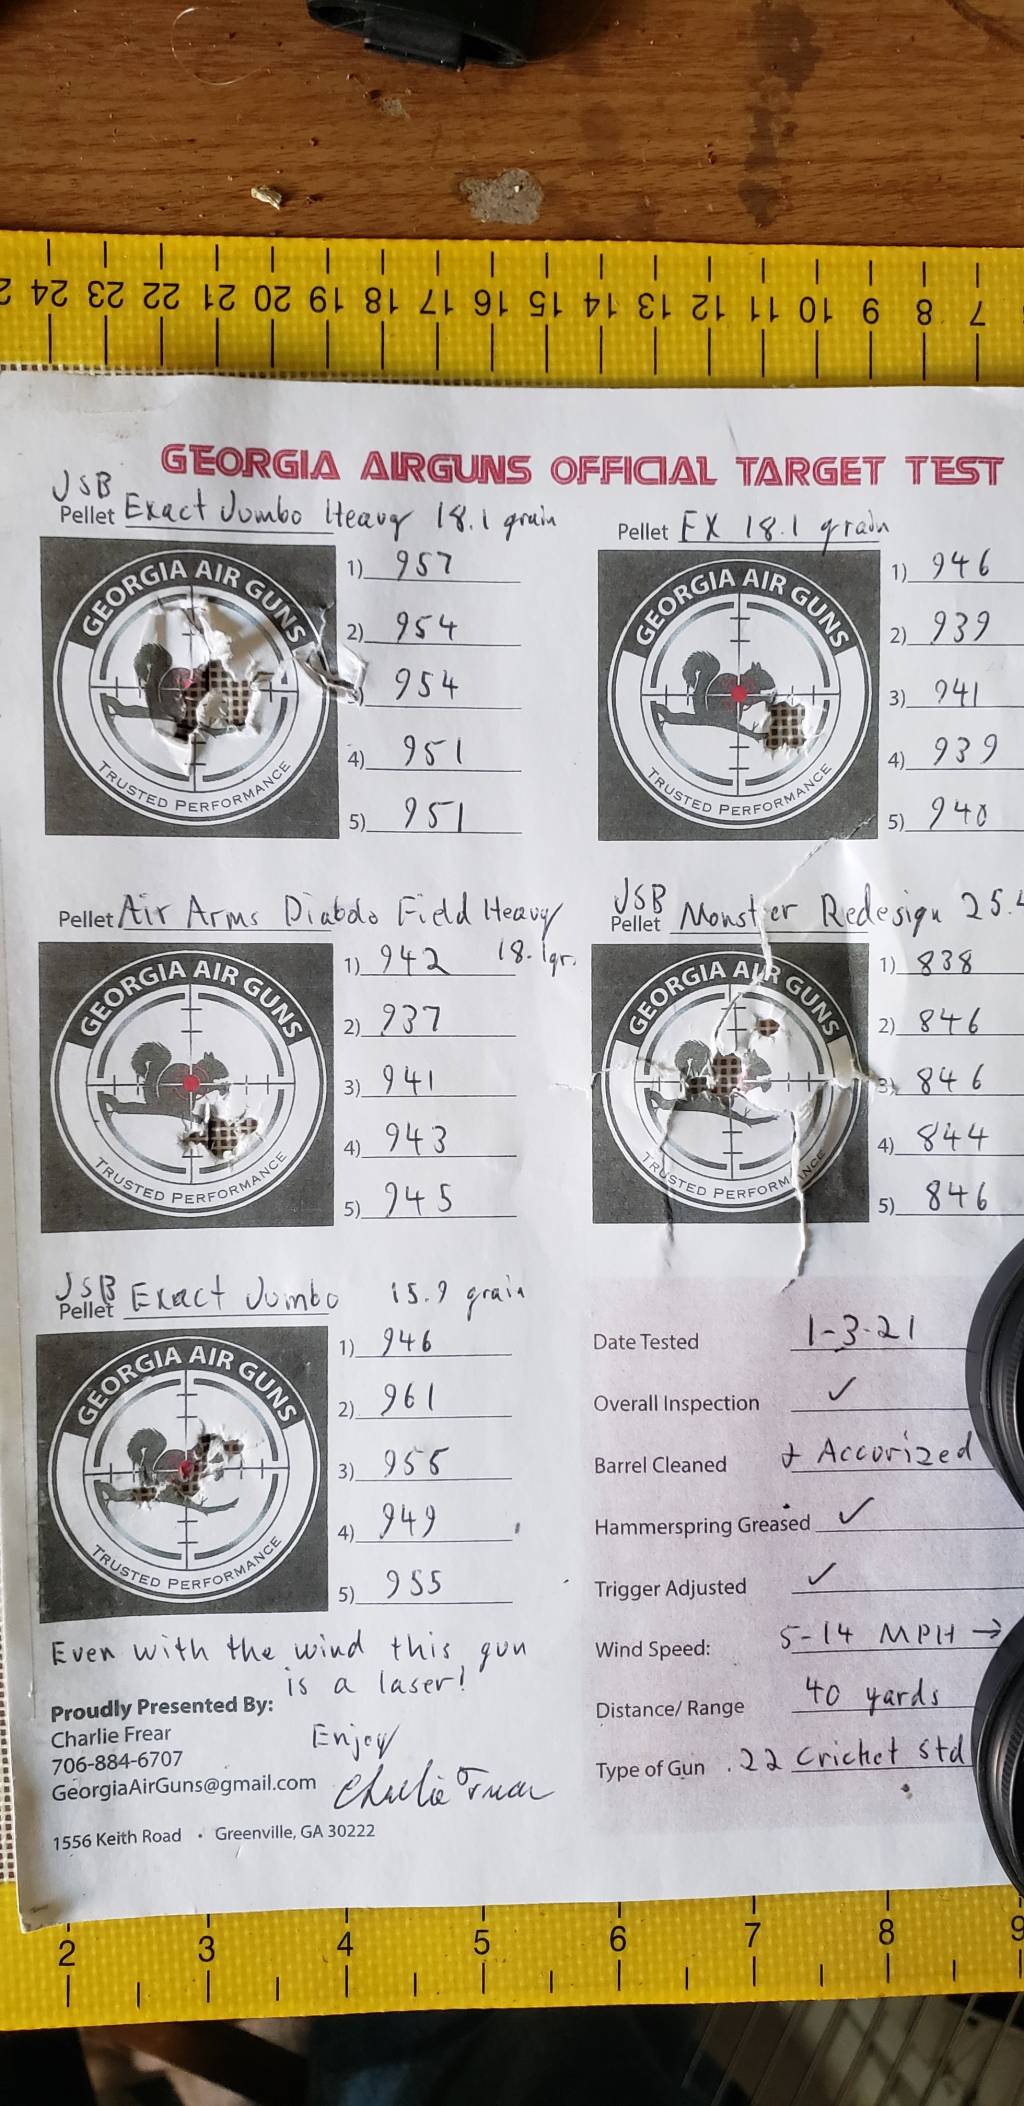 24 23 22 21 20 19 18 17 16 15 14 13 12 11 10 9 8 7
GEORGIA AIRGUNS OFFICIAL TARGET TEST
JSB
Pellet Exact Jumbo Heavy 18.1 grain
GEORGIA AIR GUNS
TRUSTED PERFORMANCE
1) 957
2) 954
954
4) 951
5) 951
Pellet FX 18.1 grain
GEORGIA AIR GUNS
TRUSTED PERFORMANCE
1) 946
2) 939
3) 941
4) 939
5) 940
Pellet Air Arms Diabolo Field Heavy
18.1gr.
GEORGIA AIR GUNS
TRUSTED PERFORMANCE
1) 942
2) 937
3) 941
4) 943
5) 945
JSB
Pellet Monster Redesign 25.4
GEORGIA AIR GUNS
TRUSTED PERFORMANCE
1) 838
2) 846
3) 846
4) 844
5) 846
JSB
Pellet Exact Jumbo 15.9 grain
GEORGIA AIR GUNS
TRUSTED PERFORMANCE
1) 946
2) 961
3)
4) 949
5) 955
Date Tested 1-3-21
Overall Inspection ✓
Barrel Cleaned + Accurized
Hammerspring Greased ✓
Trigger Adjusted ✓
Wind Speed: 5-14 MPH →
Distance/ Range 40 yards
Type of Gun .22 Cricket std
Even with the wind this gun
is a laser!
Proudly Presented By:
Charlie Frear
706-884-6707
GeorgiaAirGuns@gmail.com
Enjoy
Charlie Frear
1556 Keith Road • Greenville, GA 30222
2 3 4 5 6 7 8 9